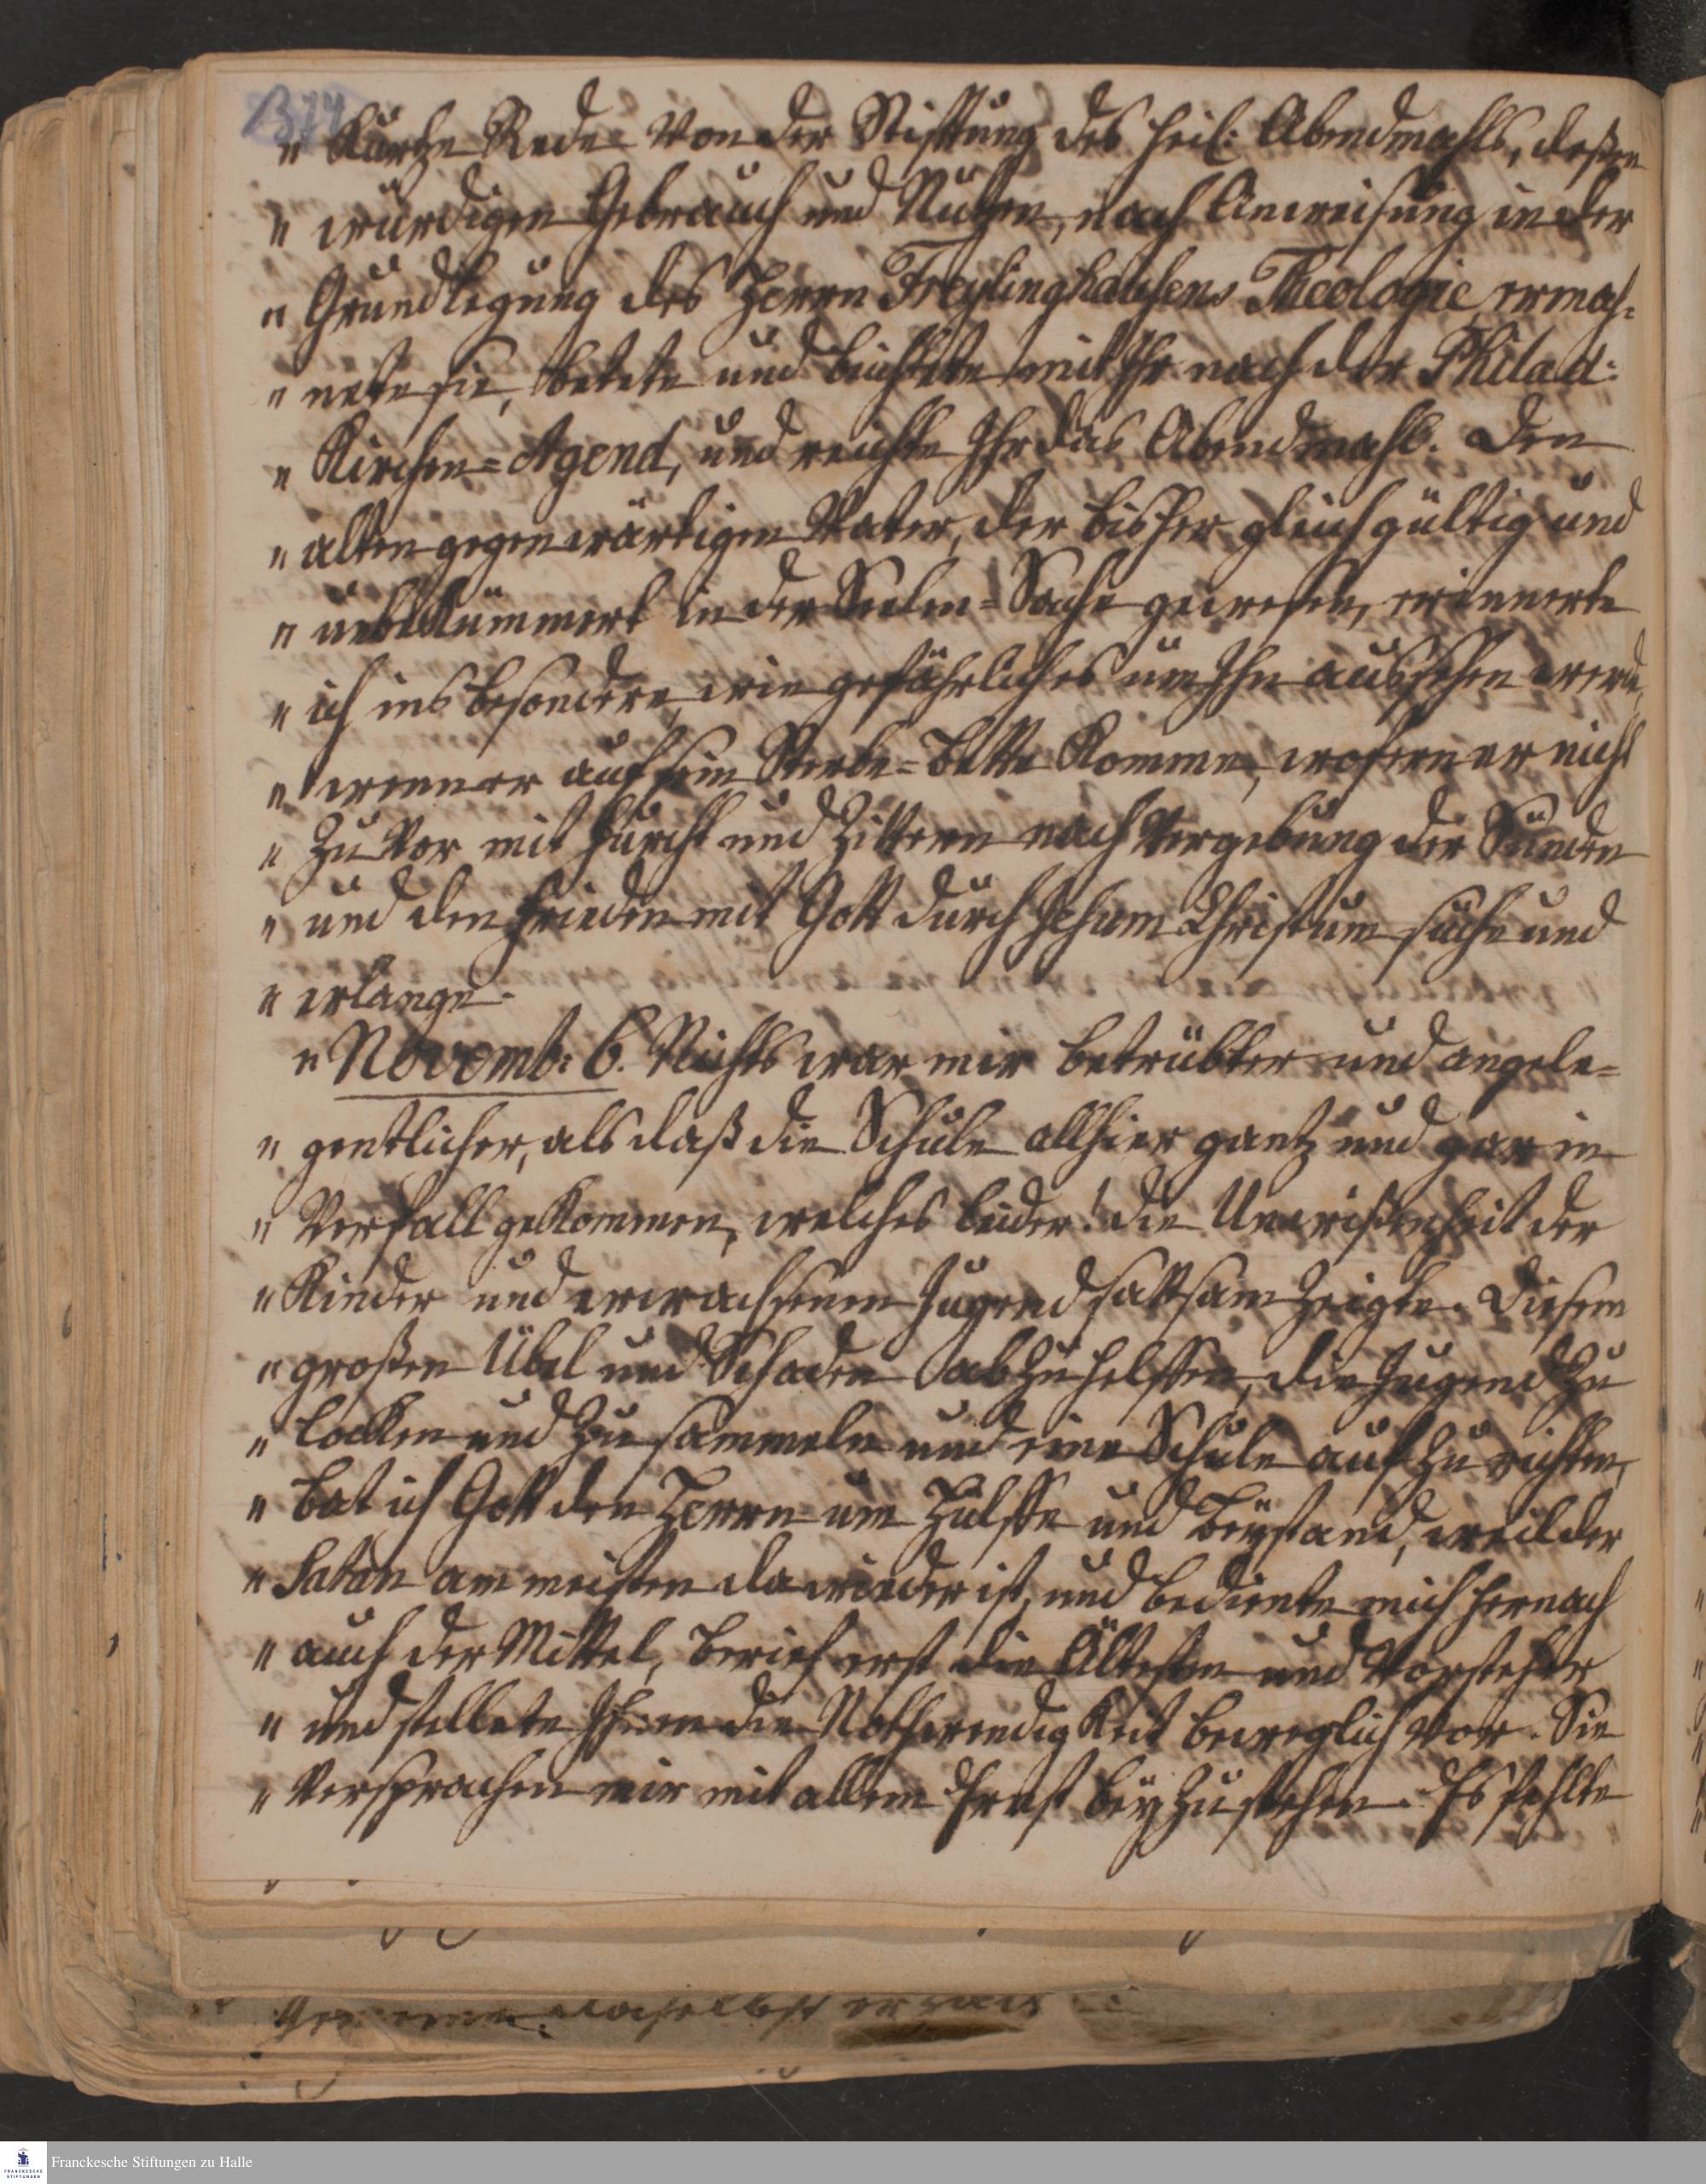 1374
" Kurtze Rede von der Stifftung des heil: Abendmahls, deßen
" würdigen Gebrauch und Nutzen, nach Anweisung in der
" Grundlegung des Herrn Freylinghausens Theologie, ermah¬
" nete sie, betete und beichtete mit Ihr nach der Philad:
" Kirchen=Agend, und reichte Ihr das Abendmahl. Den
" alten gegenwärtigen Vater, der bisher gleichgültig und
" unbekümmert in der Seelen=Sache gewesen, erinnerte
" ich ins besondere, wie gefährlich es um Ihn aussehen werde,
" wenn er auf sein Sterbe=Bette komme, wofern er nicht
" zuvor mit Furcht und Zittern nach Vergebung der Sünden
" und den Frieden mit Gott durch Jesum Christum suche und
" erlange.
" Novemb: 6. Nichts war mir betrübter und angele=
" gentlicher, als daß die Schule allhier gantz und gar in
" Verfall gekommen, welches leider! die Unwißenheit der
" Kinder und erwachsenen Jugend sattsam zeigte. Diesem
" großen Übel und Schaden abzuhelffen, die Jugend zu
" locken und zu sammeln und eine Schule aufzurichten,
" bat ich Gott den Herrn um Hülffe und Beystand, weil der
" Satan am meisten dawieder ist, und bediente mich hernach
" auch der Mittel, berief erst die Ältesten und Vorsteher
" und stellete Ihnen die Nothwendigkeit beweglich vor. Sie
" versprachen mir mit allem Ernst beyzustehen. Es fehlte
Franckesche Stiftungen zu Halle